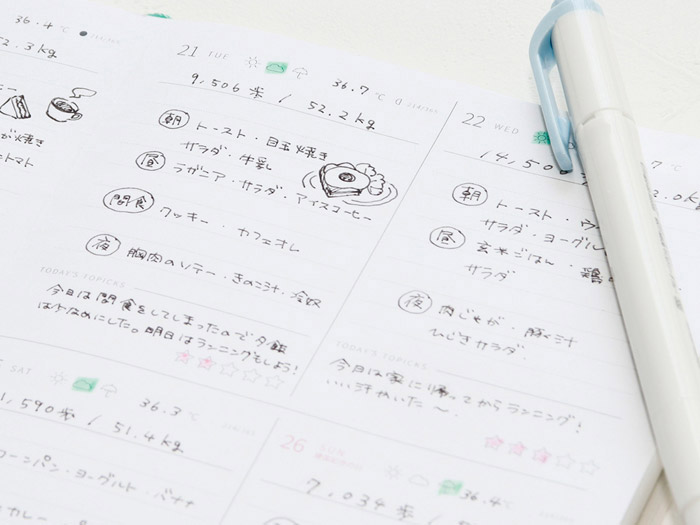 36.4 ℃
2.3 kg
が焼き
トマト
21 TUE
36.7 ℃
9,506 歩 / 52.2 kg
朝 トースト・目玉焼き
サラダ・牛乳
昼 ラザニア・サラダ・アイスコーヒー
間食 クッキー・カフェオレ
夜 胸肉のソテー・きのこ汁・冷奴
TODAY'S TOPICS
今日は間食をしてしまったので夕飯
は少なめにした。明日はランニングもしよう!
22 WED
7 ℃
14,50
2.0 kg
朝 トースト・
サラダ・ヨーグル
昼 玄米ごはん・鶏
サラダ
夜 肉じゃが・豚汁
ひじきサラダ
TODAY'S TOPICS
今日は家に帰ってからランニング!
いい汗かいた〜。
SAT
36.3 ℃
1,590 歩 / 51.4 kg
コーンパン・ヨーグルト・バナナ
カレー
26 SUN
36.4 ℃
7,034 歩